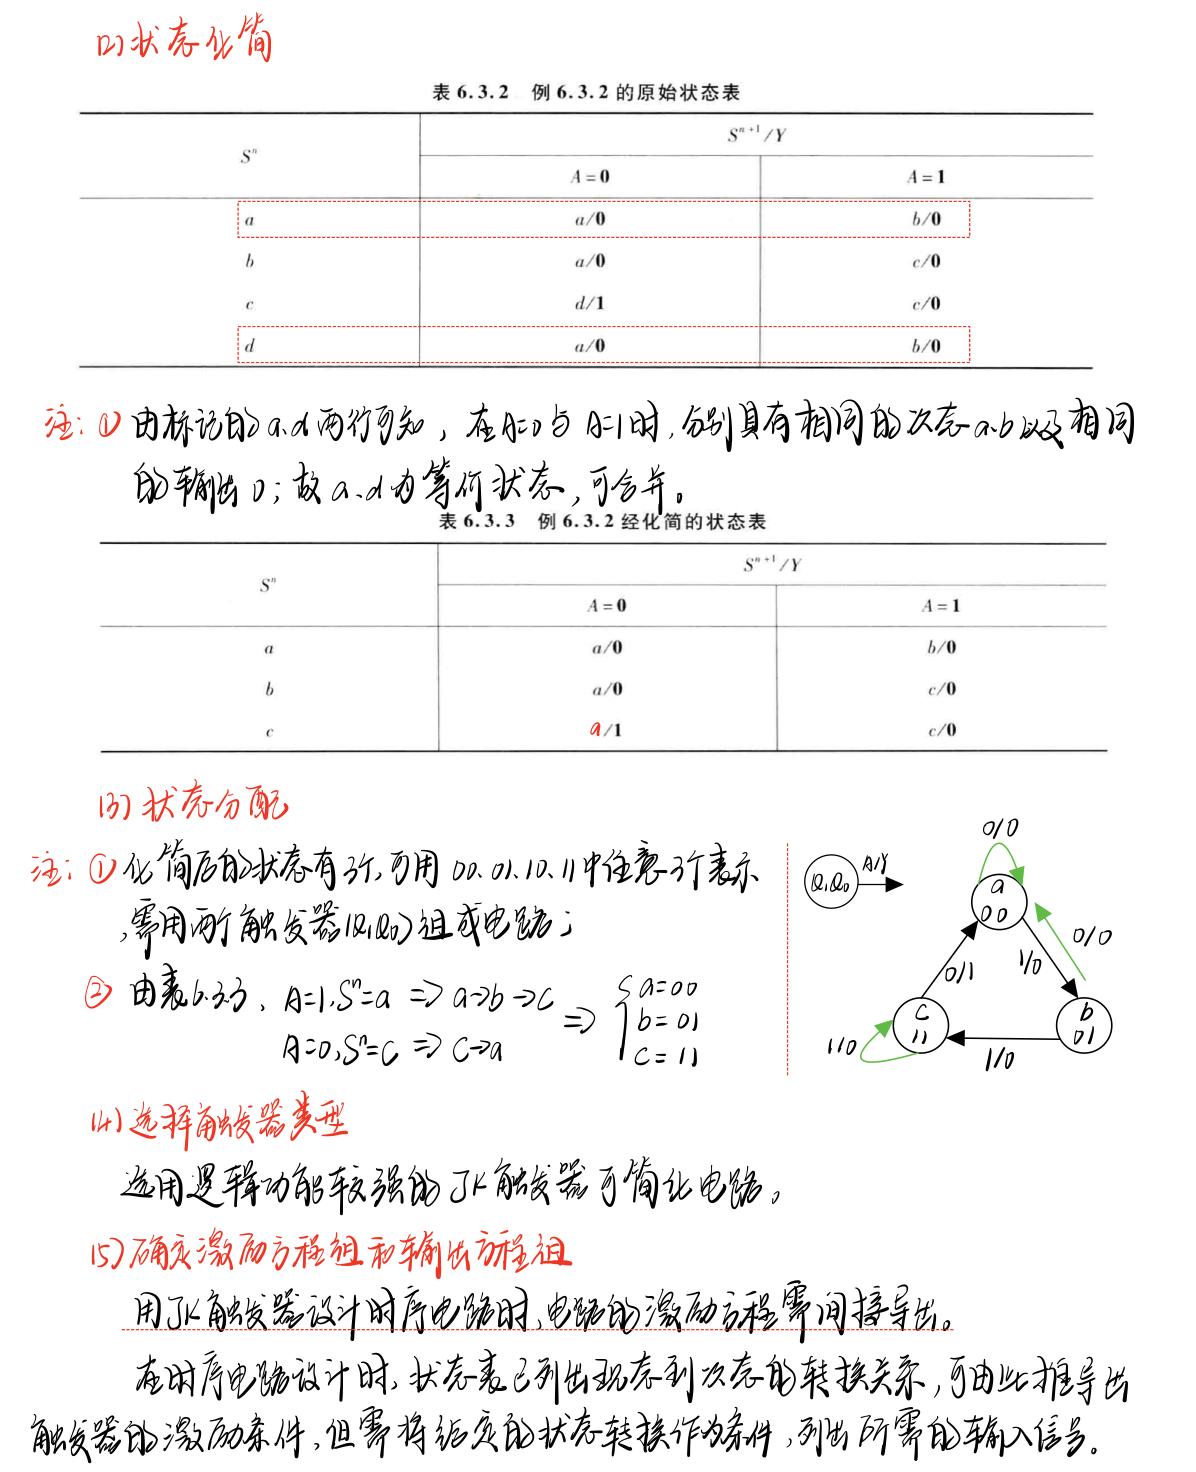 (2) 状态化简
表 6.3.2 例 6.3.2 的原始状态表
Sⁿ Sⁿ⁺¹/Y
A=0 A=1
a a/0 b/0
b a/0 c/0
c d/1 c/0
d a/0 b/0
注: ① 由标记的a、d两行可知, 在A=0与A=1时, 分别具有相同的次态a、b以及相同
的输出0; 故a、d为等价状态, 可合并。
表 6.3.3 例 6.3.2 经化简的状态表
Sⁿ Sⁿ⁺¹/Y
A=0 A=1
a a/0 b/0
b a/0 c/0
c a/1 c/0
(3) 状态分配
注: ① 化简后的状态有3个, 可用00、01、10、11中任意3个表示
, 需用两个触发器(Q₁Q₀)组成电路;
② 由表6.3.3, A=1, Sⁿ=a ⇒ a→b→c ⇒ { a=00
b=01
A=0, Sⁿ=c ⇒ c→a c=11
Q₁Q₀ A/Y
0/0
a
00
0/0
1/0
0/1
c
11
b
01
1/0
1/0
(4) 选择触发器类型
选用逻辑功能较强的JK触发器可简化电路。
(5) 确定激励方程组和输出方程组
用JK触发器设计时序电路时, 电路的激励方程需间接导出。
在时序电路设计时, 状态表已列出现态到次态的转换关系, 可由此推导出
触发器的激励条件, 但需将给定的状态转换作为条件, 列出所需的输入信号。